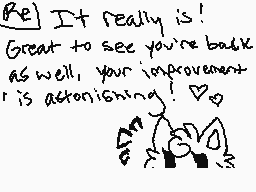 Re
It really is!
Great to see you're back
as well, your improvement
is astonishing! ♡♡